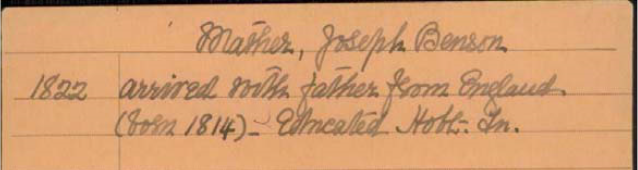 Mather, Joseph Benson
1822 arrived with father from England.
(born 1814) - Educated Hobt. Tn.